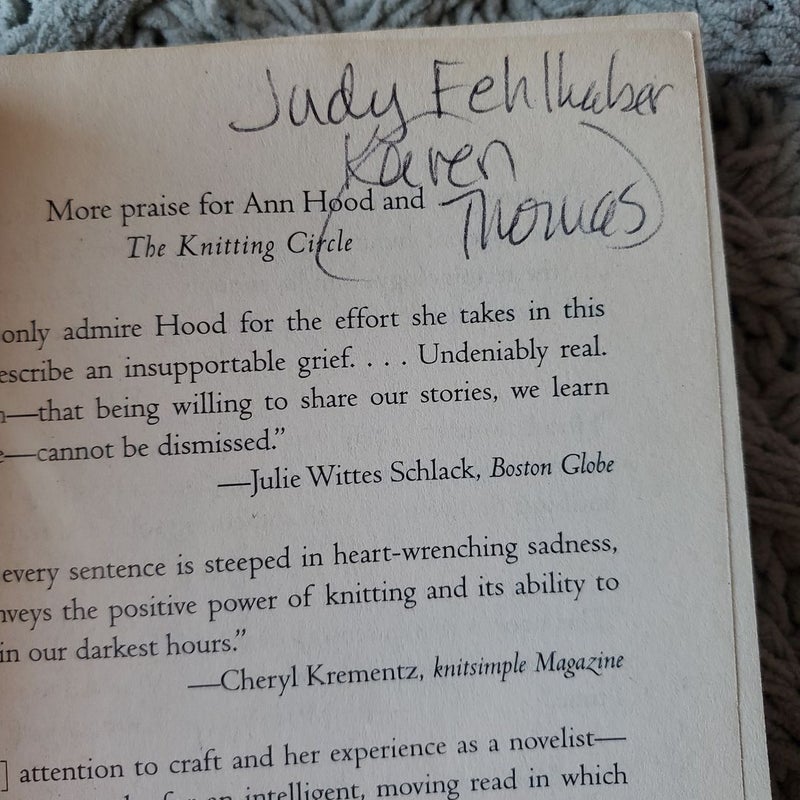 Judy Fehlhaber
Karen
Thomas
More praise for Ann Hood and
The Knitting Circle
only admire Hood for the effort she takes in this
escribe an insupportable grief. . . . Undeniably real.
—that being willing to share our stories, we learn
—cannot be dismissed.”
—Julie Wittes Schlack, Boston Globe
every sentence is steeped in heart-wrenching sadness,
nveys the positive power of knitting and its ability to
in our darkest hours.”
—Cheryl Krementz, knitsimple Magazine
] attention to craft and her experience as a novelist—
for an intelligent, moving read in which